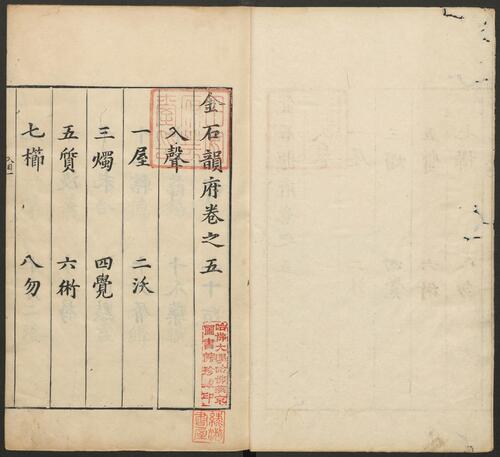 金石韻府卷之五
入聲
一屋 二沃
三燭 四覺
五質 六術
七櫛 八勿
哈佛大學哈佛燕京
圖書館珍藏印